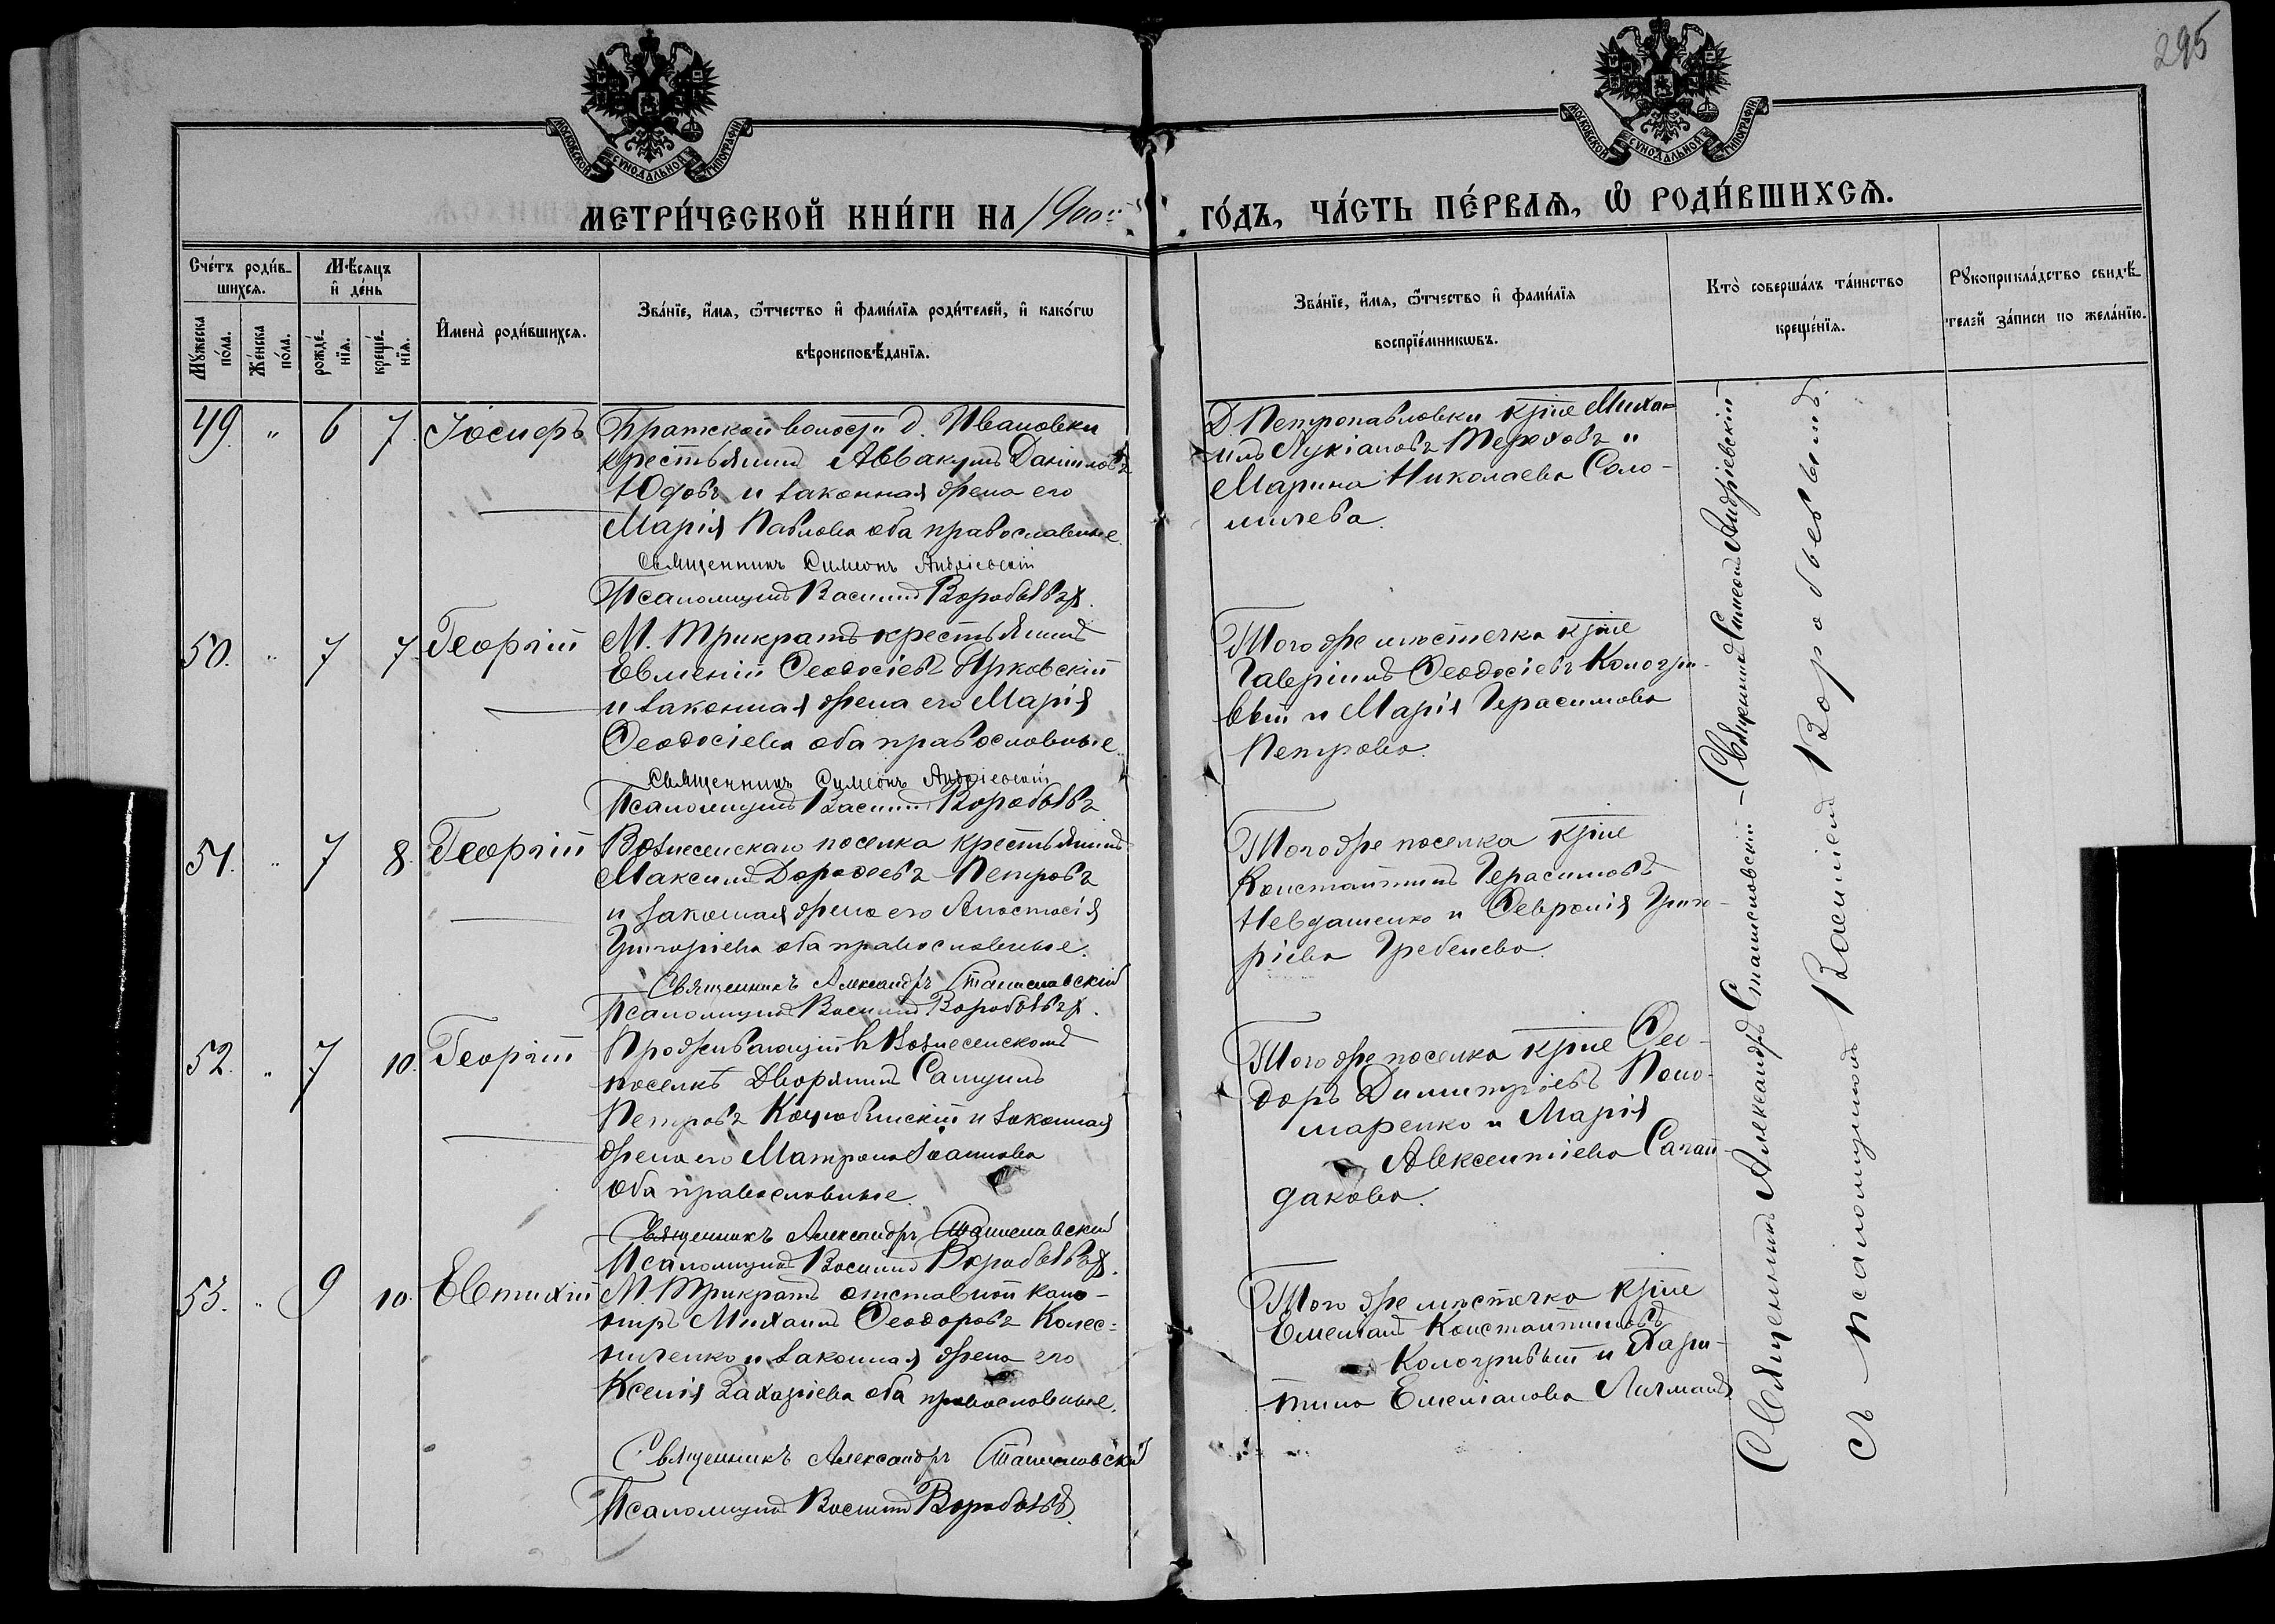 295
МОСКОВСКОЙ СѴНОДАЛЬНОЙ ТИПОГРАФІИ
МОСКОВСКОЙ СѴНОДАЛЬНОЙ ТИПОГРАФІИ
МЕТРИ́ЧЕСКОЙ КНИ́ГИ НА 1900й
ГО́ДЪ, ЧА́СТЬ ПЕ́РВАѦ, Ѡ҆ РОДИ́ВШИХСѦ.
Сче́тъ роди́в-
шихсѧ.
Мꙋжеска по́ла.
Же́нска по́ла.
Мѣ́сѧцъ
и҆ де́нь
рожде́-
нїѧ.
креще́-
нїѧ.
И҆мена̀ роди́вшихсѧ.
Зва́нїе, и҆́мѧ, ѻ҆́тчество и҆ фами́лїѧ роди́телей, и҆ како́гѡ
вѣроисповѣ́данїѧ.
Зва́нїе, и҆́мѧ, ѻ҆́тчество и҆ фами́лїѧ
воспрїе́мникѡвъ.
Кто̀ соверша́лъ та́инство
креще́нїѧ.
Рꙋкоприкла́дство свидѣ́-
телей за́писи по жела́нїю.
49. " 6 7. Іосифъ
Братской волости д. Ивановки
крестьянинъ Аввакумъ Даніиловъ
Юдовъ и законная жена его
Марія Павлова оба православные.
Священникъ Симеонъ Андріевскій
Псаломщикъ Василій Воробьевъ.
Д. Петропавловки кр-не Миха-
илъ Лукіановъ Тереховъ и
Марина Николаева Соло-
мичева.
50. " 7 7. Георгій
М. Трикратъ крестьянинъ
Евменій Ѳеодосіевъ Ярковскій
и законная жена его Марія
Ѳеодосіева оба православные.
Священникъ Симеонъ Андріевскій
Псаломщикъ Василій Воробьевъ
Того же мѣстечка кр-не
Гавріилъ Ѳеодосіевъ Кологри-
вый и Марія Герасимова
Петрова.
51. " 7 8. Георгій
Вознесенскаго поселка крестьянинъ
Максимъ Дороѳеевъ Петровъ
и законная жена его Анастасія
Григоріева оба православные.
Священникъ Александръ Станиславскій
Псаломщикъ Василій Воробьевъ.
Того же поселка кр-не
Константинъ Герасимовъ
Невдашенко и Февронія Григо-
ріева Гребенева.
52. " 7. 10. Георгій
Проживающій въ Вознесенскомъ
поселкѣ Дворянинъ Самуилъ
Петровъ Коцюбинскій и законная
жена его Матрона Іоаннова
Оба православные.
Священникъ Александръ Станиславскій
Псаломщикъ Василій Воробьевъ.
Того же поселка кр-не Ѳео-
доръ Димитріевъ Поно-
маренко и Марія
Авксентіева Сагай-
дакова.
53. " 9 10. Евтихій
М. Трикратъ отставной кано-
ниръ Михаилъ Ѳеодоровъ Колес-
ниченко и законная жена его
Ксенія Захаріева оба православные.
Священникъ Александръ Станиславскій
Псаломщикъ Василій Воробьевъ.
Того же мѣстечка кр-не
Емеліанъ Константиновъ
Кологривый и Хари-
тина Емеліанова Личманъ
Священникъ Александръ Станиславскій – Священникъ Симеонъ Андріевскій
съ псаломщикомъ Василіемъ Воробьевымъ.